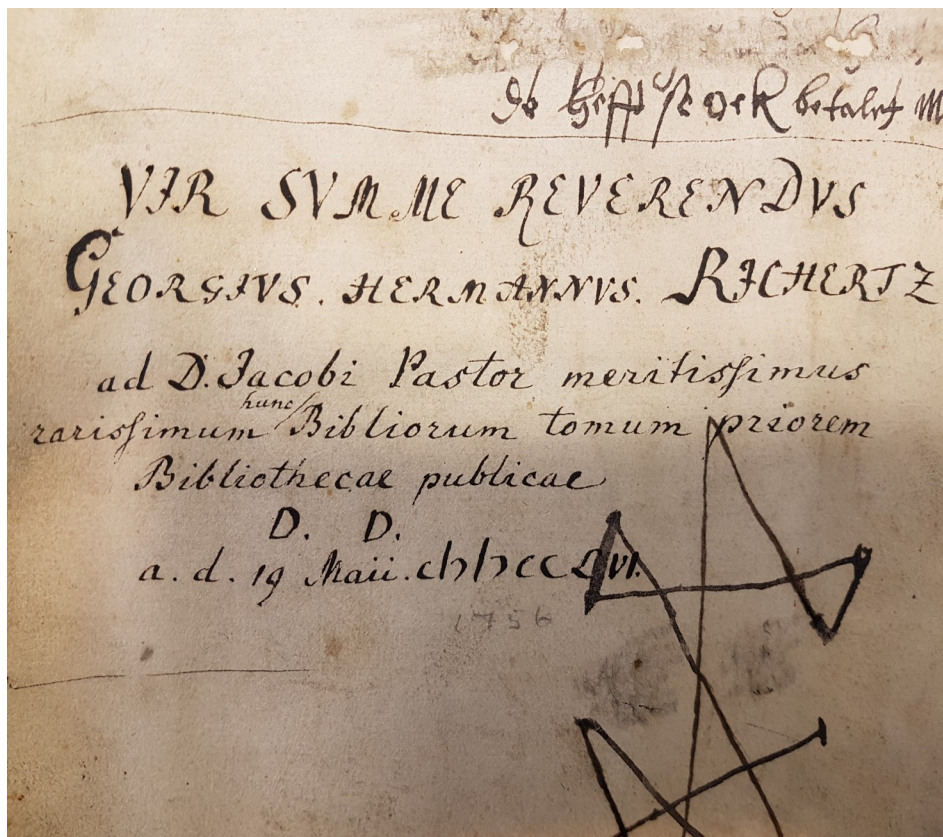 betalet
VIR SVMME REVERENDVS
GEORGIVS. HERMANNVS. RICHERTZ
ad D. Jacobi Pastor meritissimus
rarissimum hunc Bibliorum tomum priorem
Bibliothecae publicae
D. D.
a. d. 19 Maii. cIↄIↄccLVI.
1756